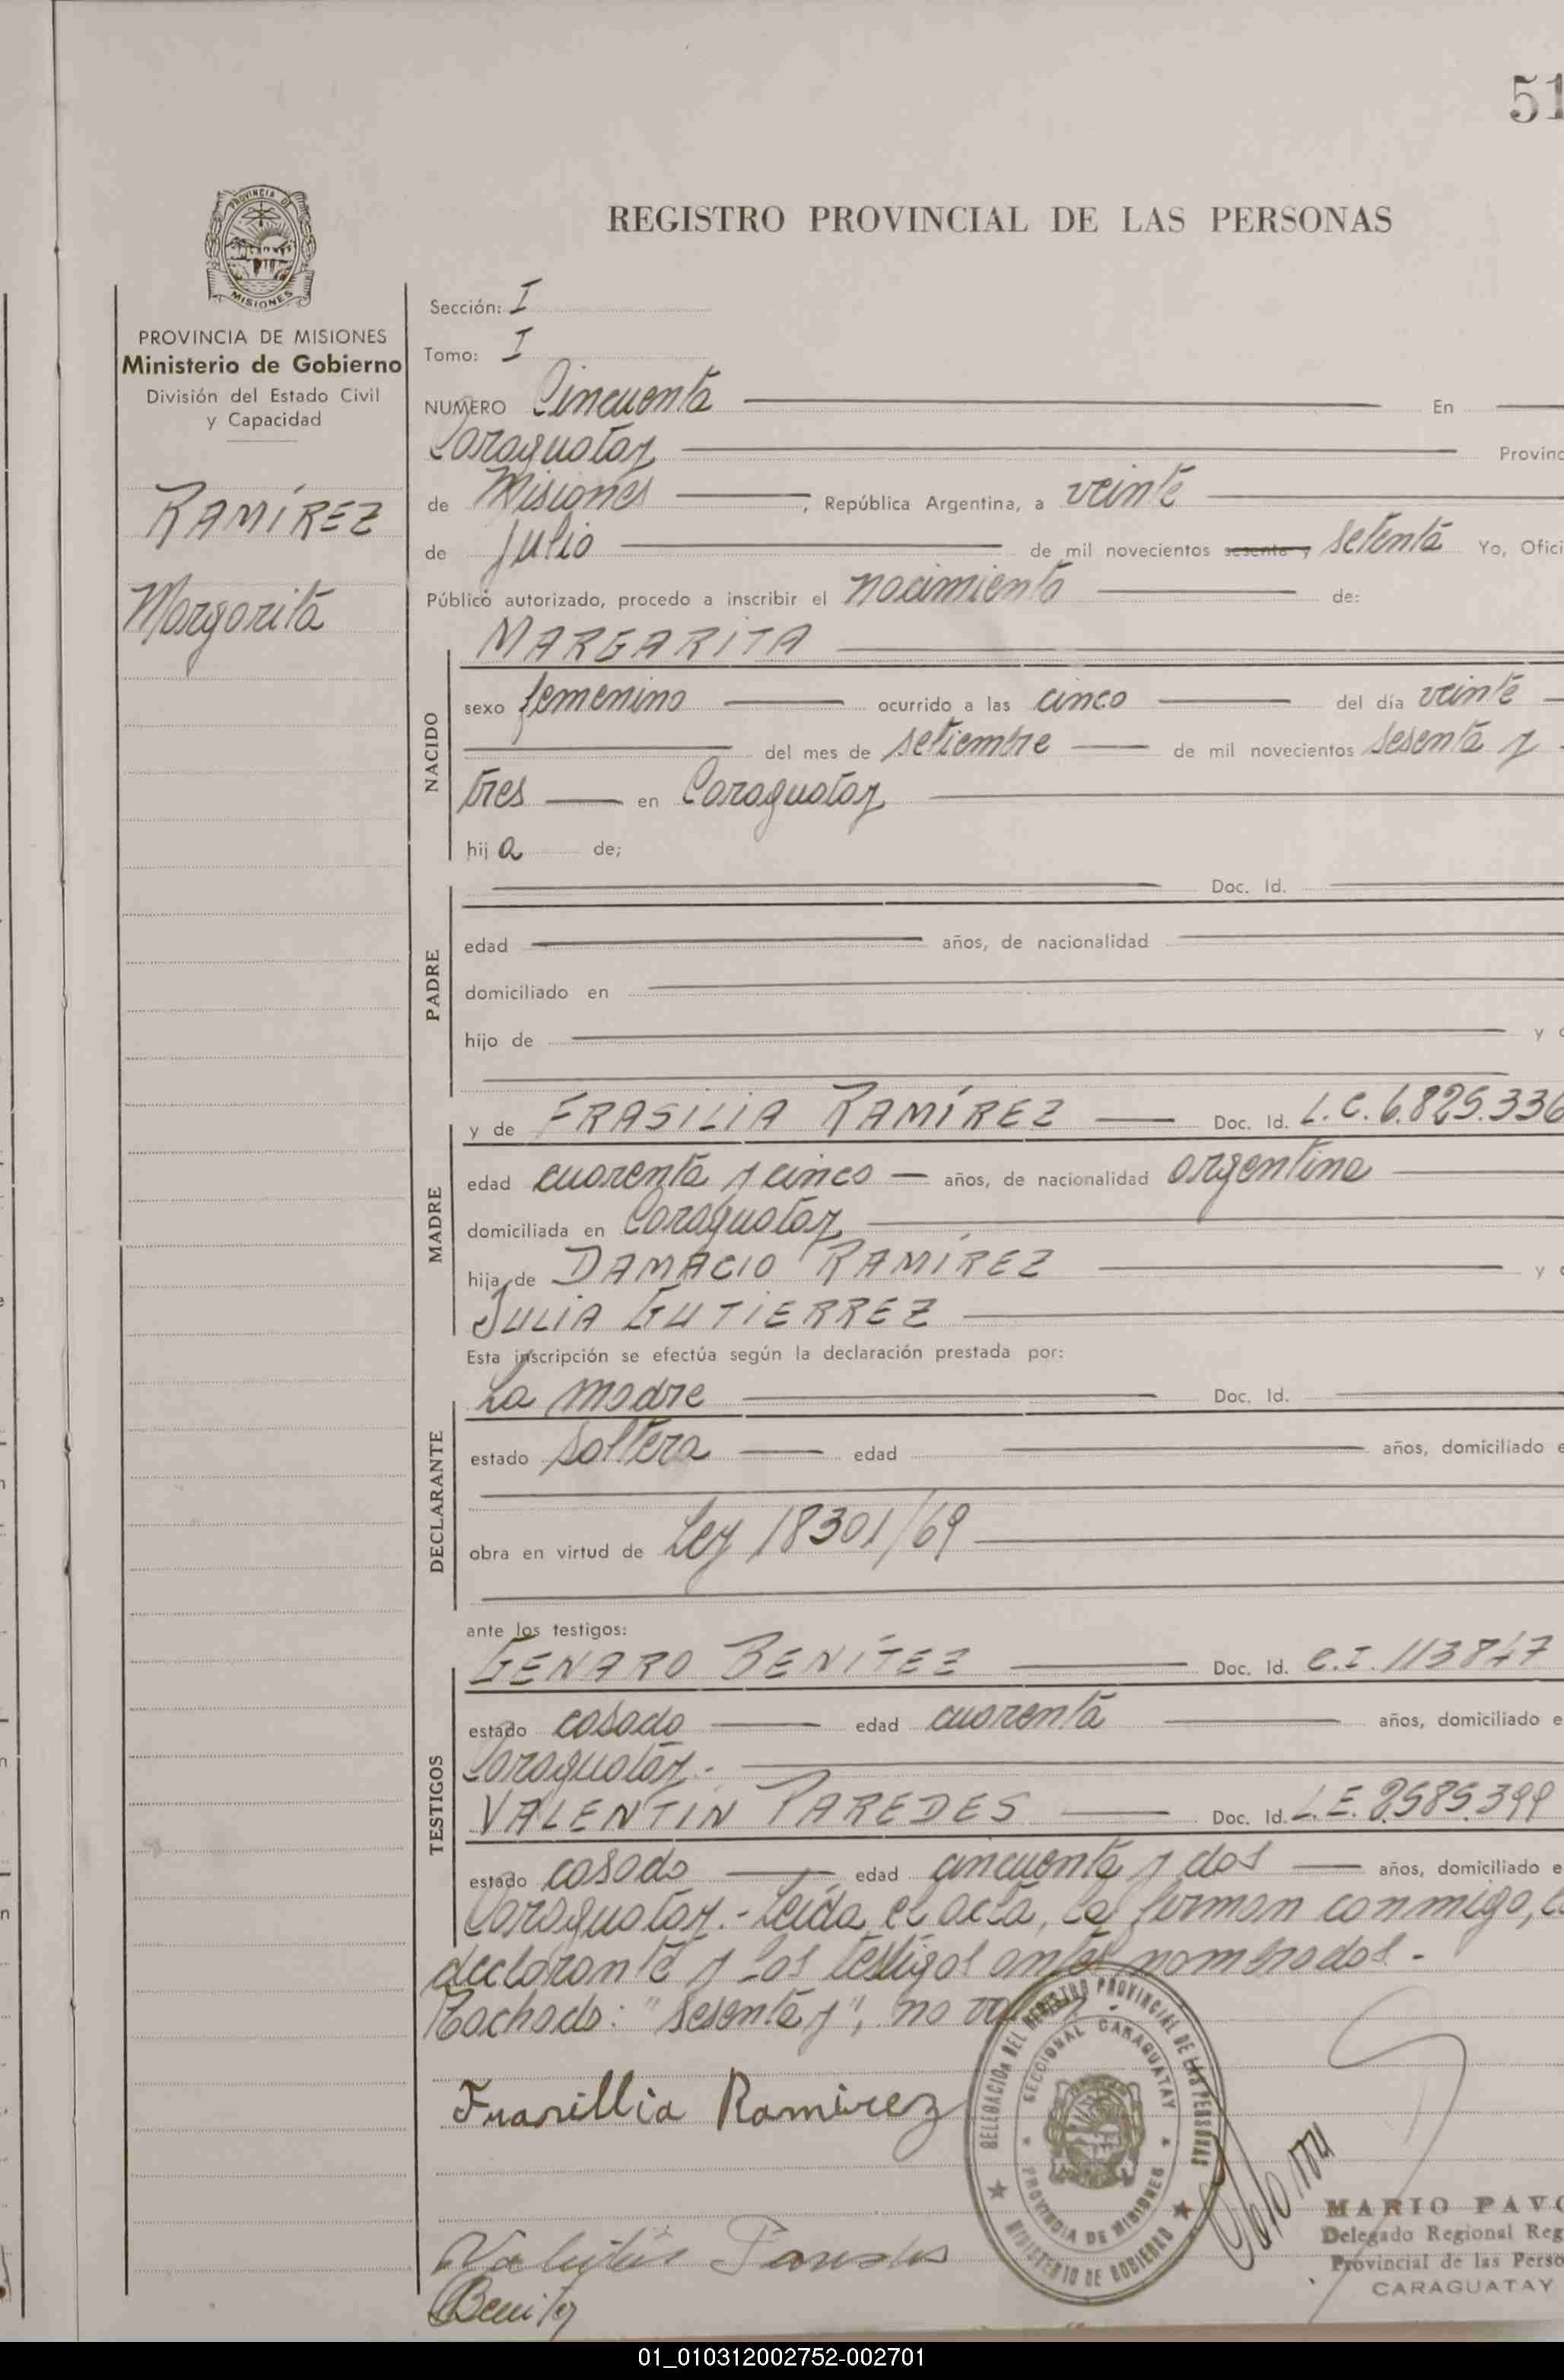 51
PROVINCIA DE
MISIONES
REGISTRO PROVINCIAL DE LAS PERSONAS
PROVINCIA DE MISIONES
Ministerio de Gobierno
División del Estado Civil
y Capacidad
RAMÍREZ
Margarita
Sección: I
Tomo: I
NUMERO Cincuenta En
Caraguatay Provinc
de Misiones, República Argentina, a veinte
de Julio de mil novecientos sesenta y setenta Yo, Ofici
Público autorizado, procedo a inscribir el nacimiento de:
NACIDO
MARGARITA
sexo femenino ocurrido a las cinco del día veinte
del mes de setiembre de mil novecientos sesenta y
tres en Caraguatay
hija de;
PADRE
Doc. Id.
edad años, de nacionalidad
domiciliado en
hijo de y
MADRE
y de FRASILIA RAMÍREZ Doc. Id. L.C. 6.825.336
edad cuarenta y cinco años, de nacionalidad argentina
domiciliada en Caraguatay
hija de DAMACIO RAMÍREZ y
JULIA GUTIERREZ
Esta inscripción se efectúa según la declaración prestada por:
DECLARANTE
La madre Doc. Id.
estado soltera edad años, domiciliado e
obra en virtud de Ley 18301/69
ante los testigos:
TESTIGOS
GENARO BENÍTEZ Doc. Id. C.I. 113847
estado casado edad cuarenta años, domiciliado e
Caraguatay.-
VALENTIN PAREDES Doc. Id. L.E. 2585.399
estado casado edad cincuenta y dos años, domiciliado e
Caraguatay.- Leída el acta, la firman conmigo,
declarante y los testigos antes nombrados.-
Tachado: "sesenta y", no
DELEGACION DEL REGISTRO PROVINCIAL DE LAS PERSONAS
SECCIONAL CARAGUATAY
PROVINCIA DE MISIONES
MINISTERIO DE GOBIERNO
Frasillia Ramirez
MARIO PAVO
Delegado Regional Reg
Provincial de las Perso
CARAGUATAY
01_010312002752-002701